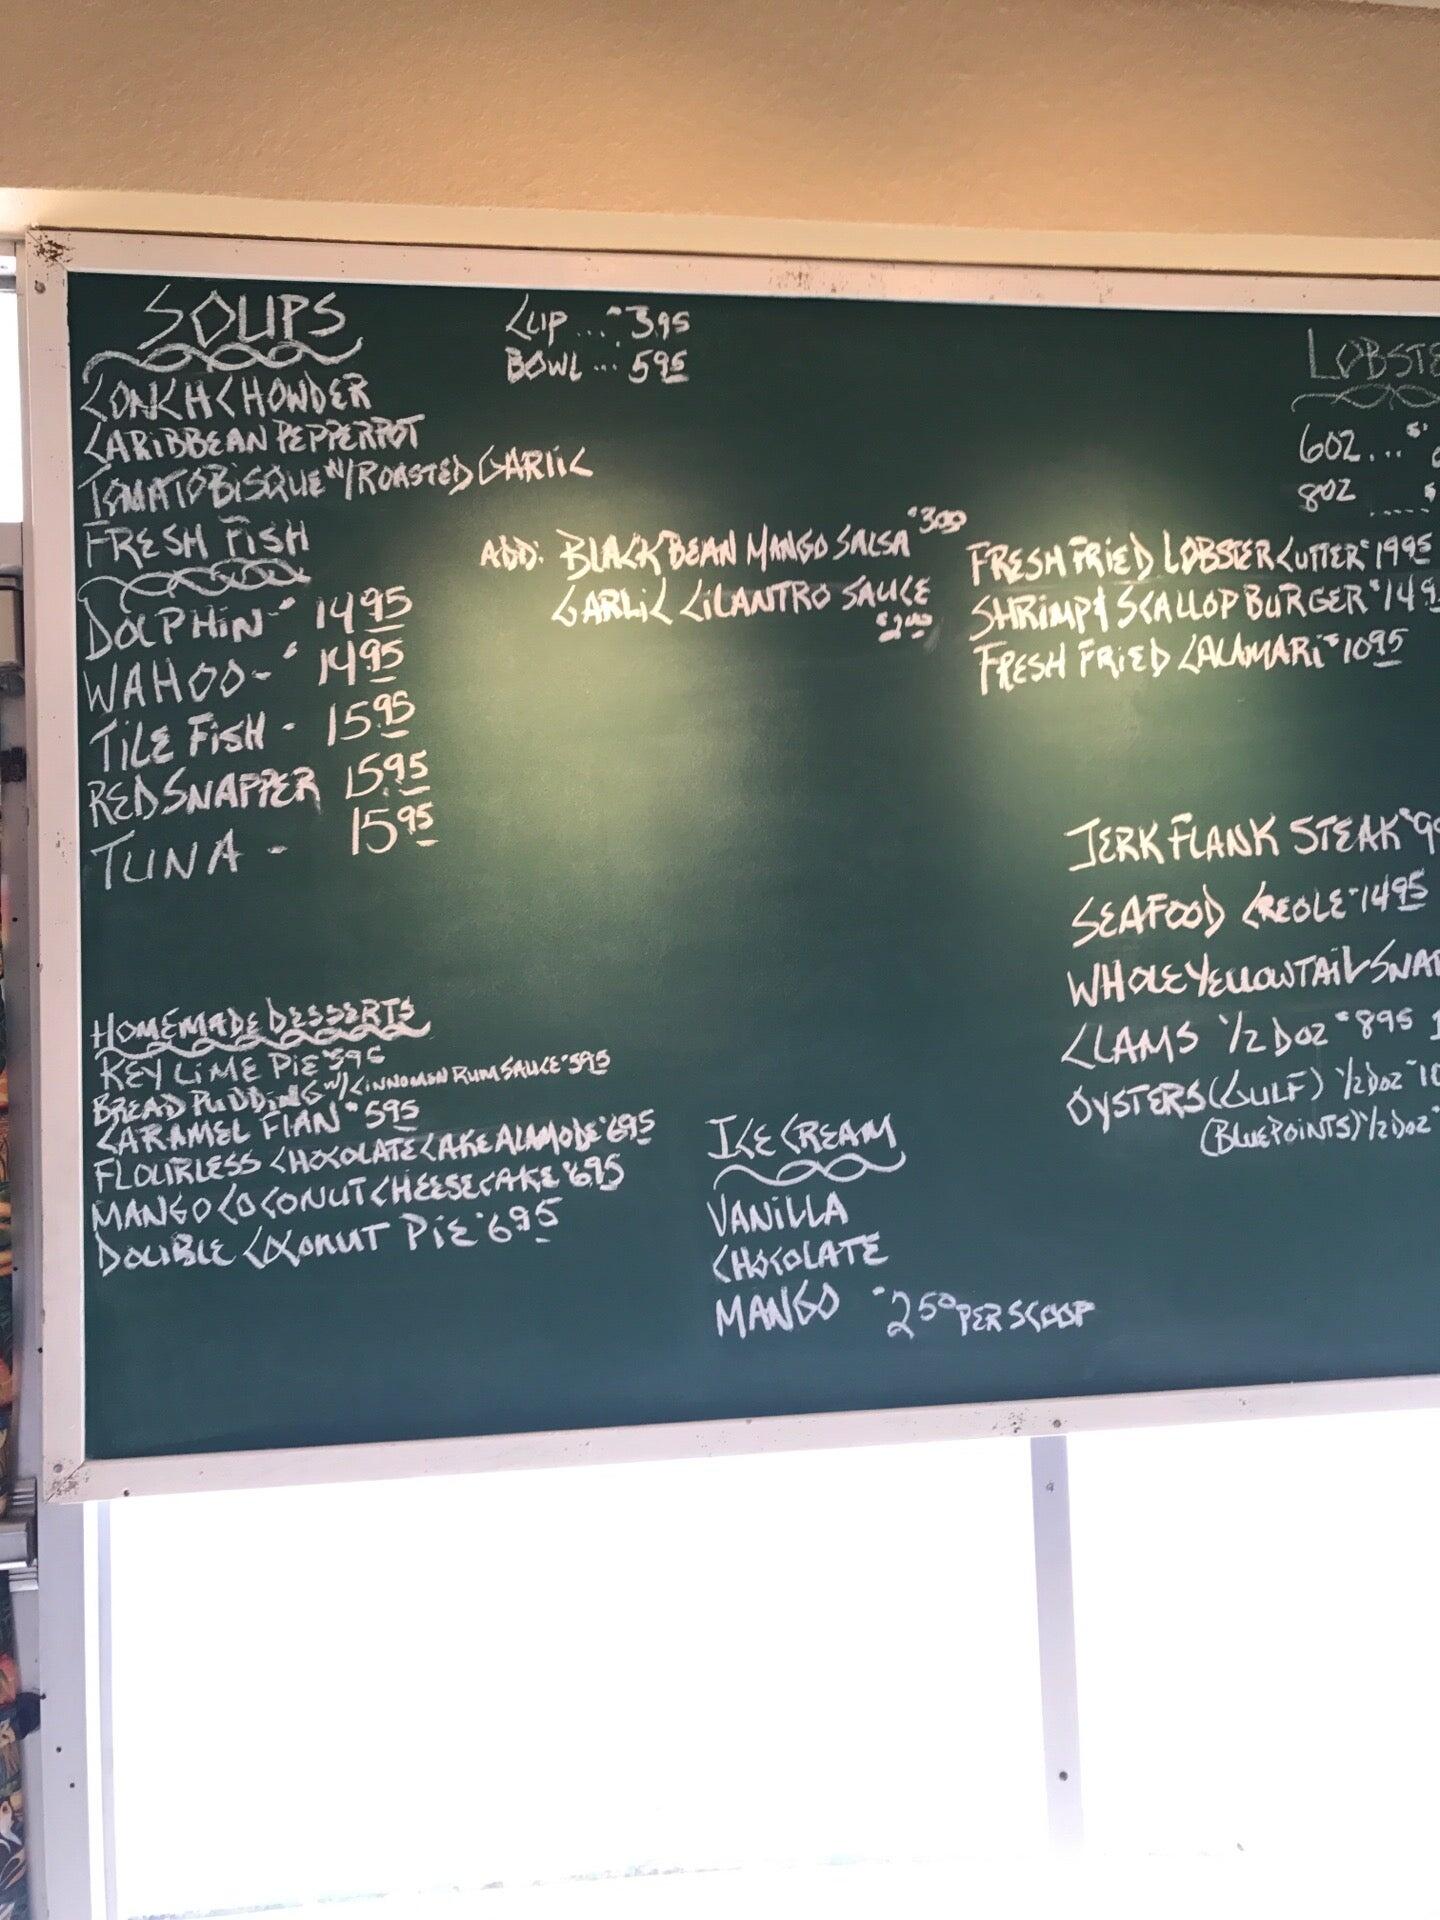 SOUPS
CUP ... $3.95
BOWL ... 5.95
CONCH CHOWDER
CARIBBEAN PEPPERPOT
TOMATO BISQUE W/ROASTED GARLIC
FRESH FISH
DOLPHIN - $14.95
WAHOO - $14.95
TILE FISH - 15.95
RED SNAPPER 15.95
TUNA - 15.95
ADD: BLACK BEAN MANGO SALSA $3.00
GARLIC CILANTRO SAUCE
$2.00
LOBSTE
6OZ... $
8OZ ..... $
FRESH FRIED LOBSTER CUTTER $19.95
SHRIMP & SCALLOP BURGER $14.9
FRESH FRIED CALAMARI $10.95
JERK FLANK STEAK $9
SEAFOOD CREOLE $14.95
WHOLE YELLOWTAIL SNAP
CLAMS 1/2 DOZ $8.95 1
OYSTERS (GULF) 1/2 DOZ $10
(BLUEPOINTS) 1/2 DOZ $
HOMEMADE DESSERTS
KEY LIME PIE $5.95
BREAD PUDDING W/CINNOMON RUM SAUCE $5.95
CARAMEL FLAN $5.95
FLOURLESS CHOCOLATE CAKE ALAMODE $6.95
MANGO COCONUT CHEESECAKE $6.95
DOUBLE COCONUT PIE $6.95
ICE CREAM
VANILLA
CHOCOLATE
MANGO $2.50 PER SCOOP